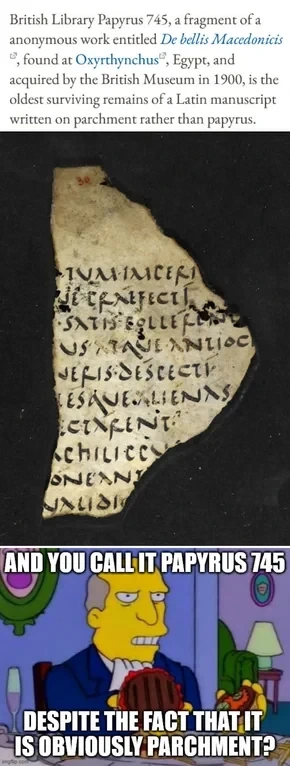 British Library Papyrus 745, a fragment of a
anonymous work entitled De bellis Macedonicis
, found at Oxyrthynchus, Egypt, and
acquired by the British Museum in 1900, is the
oldest surviving remains of a Latin manuscript
written on parchment rather than papyrus.
SATIS
US ATQUE ANTIOC
ESQUE ALIENAS
ONEANT
UALIDI
AND YOU CALL IT PAPYRUS 745
DESPITE THE FACT THAT IT
IS OBVIOUSLY PARCHMENT?
imgflip.com